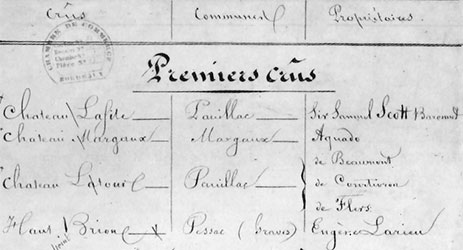 Crûs Communes Propriétaires
CHAMBRE DE COMMERCE
BORDEAUX
Premiers crûs
Chateau Lafite Pauillac Sir Samuel Scott Baronnet
Chateau Margaux Margaux Aguado
de Beaumont
Chateau Latour Pauillac de Courtivron
de Flers
Haut Brion Pessac (Graves) Eugène Larieu